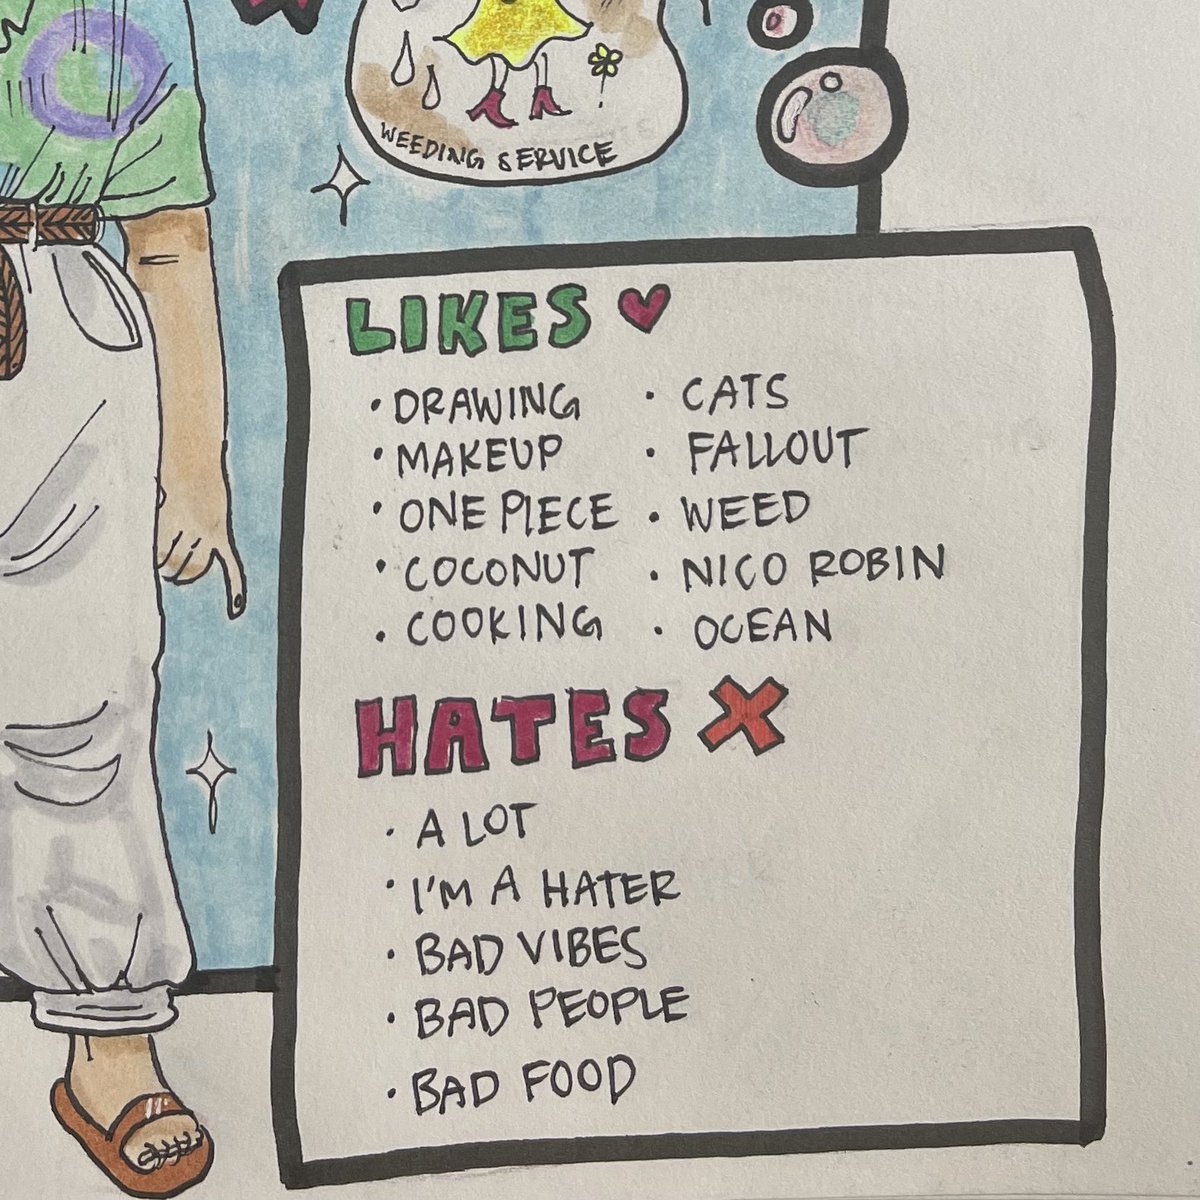 WEEDING SERVICE
LIKES
• DRAWING
• MAKEUP
• ONE PIECE
• COCONUT
• COOKING
• CATS
• FALLOUT
• WEED
• NICO ROBIN
• OCEAN
HATES
• A LOT
• I'M A HATER
• BAD VIBES
• BAD PEOPLE
• BAD FOOD